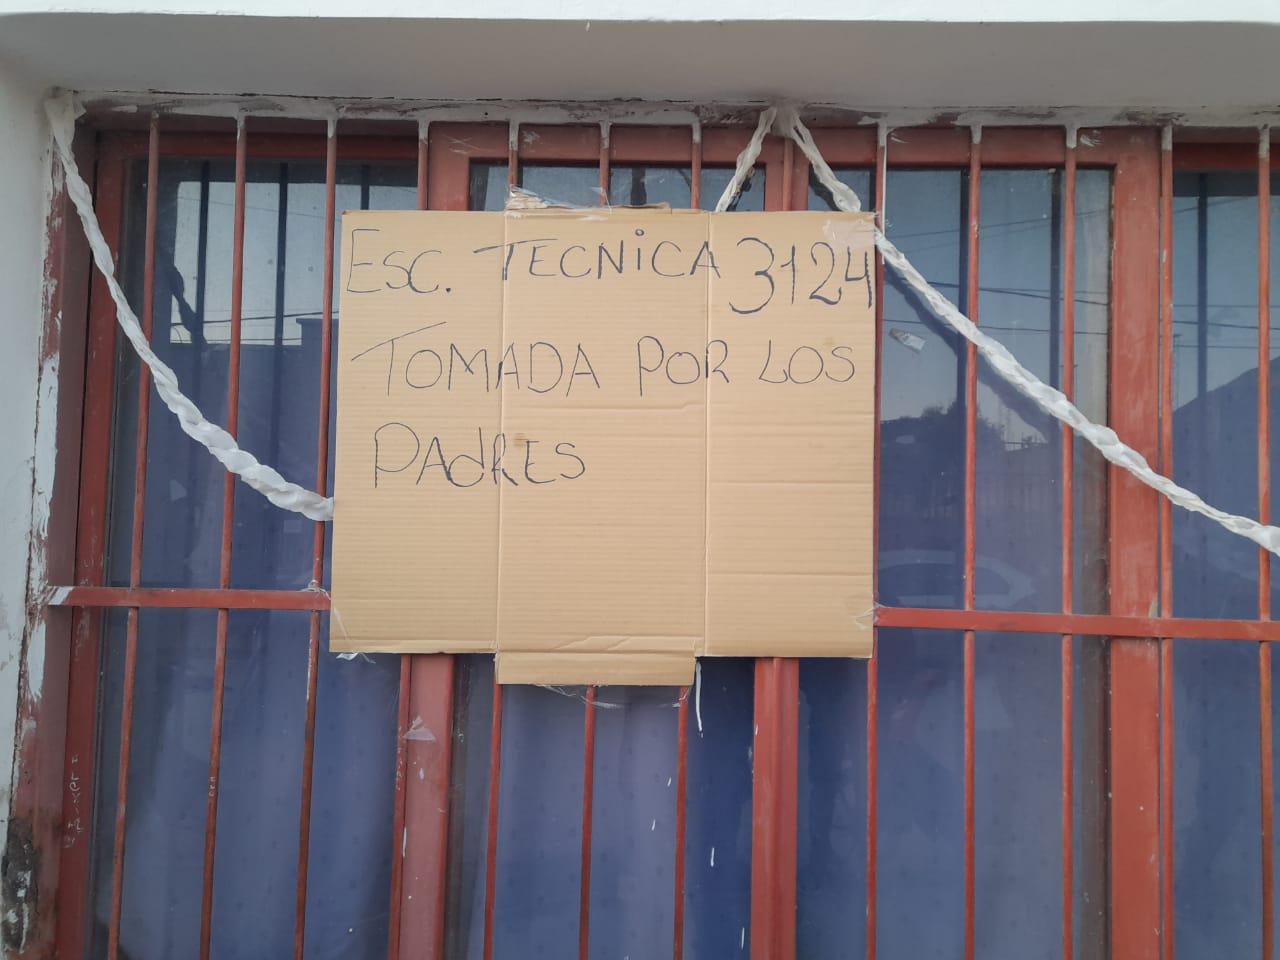 ESC. TECNICA 3124
TOMADA POR LOS
PAdRES